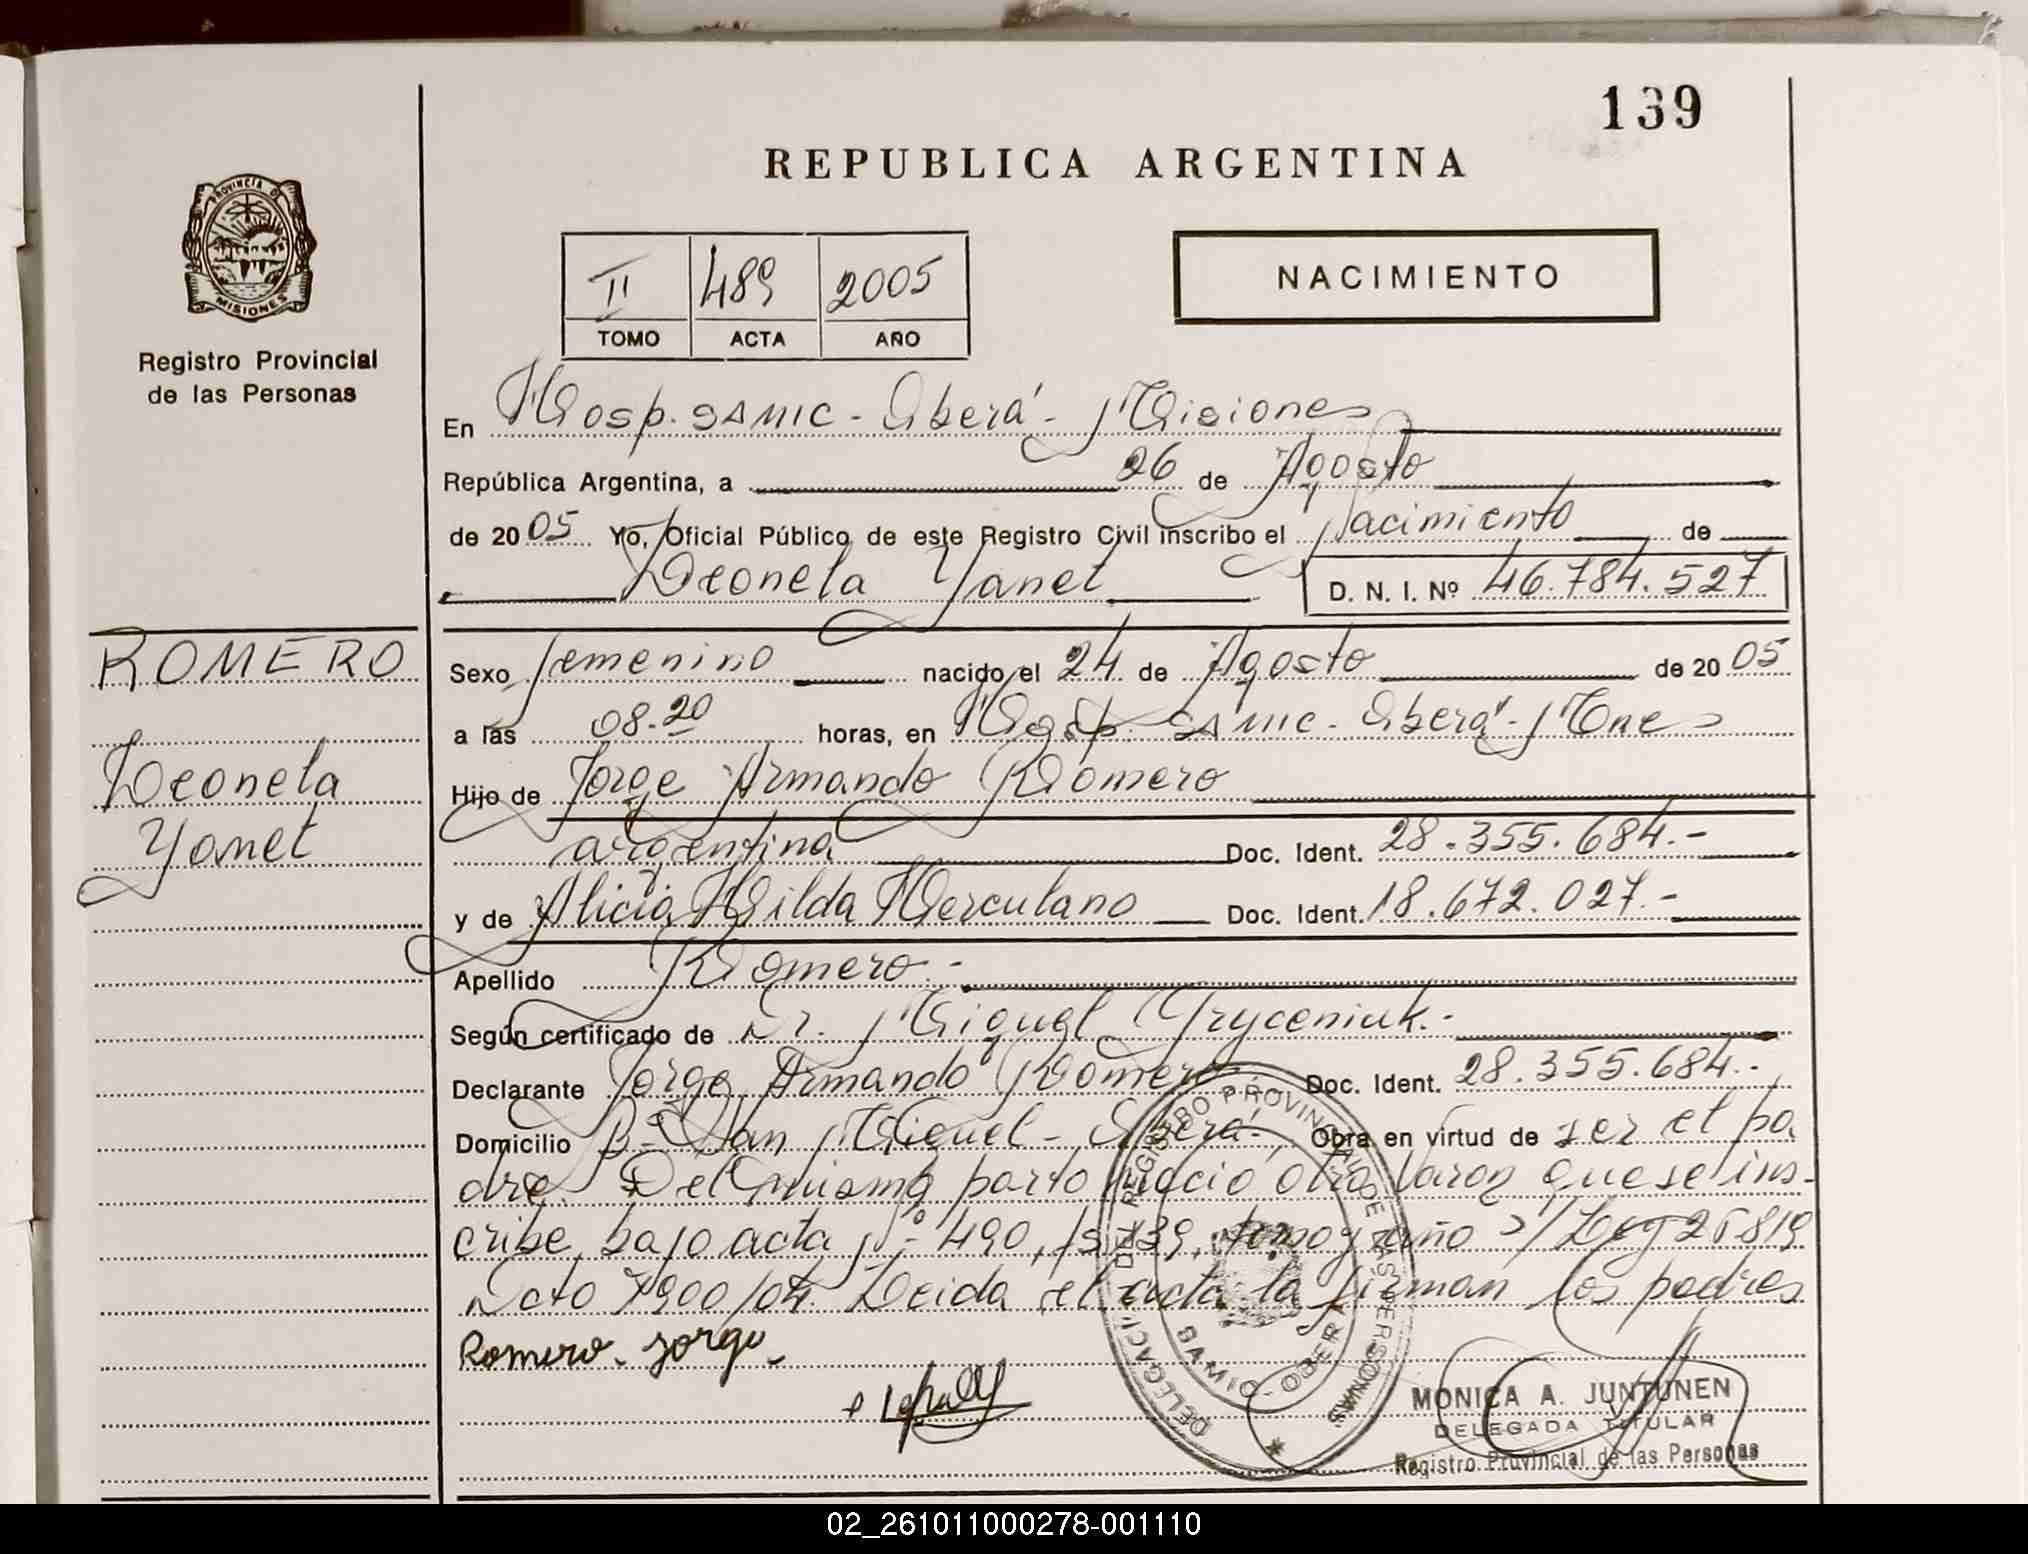 139
REPUBLICA ARGENTINA
PROVINCIA DE
MISIONES
Registro Provincial
de las Personas
II 489 2005
TOMO ACTA AÑO
NACIMIENTO
En Hosp. SAMIC - Oberá - Misiones
República Argentina, a 26 de Agosto
de 2005 Yo, Oficial Público de este Registro Civil inscribo el Nacimiento de
Leonela Yanet D. N. I. Nº 46.784.527
ROMERO
Leonela
Yanet
Sexo femenino nacido el 24 de Agosto de 2005
a las 08.20 horas, en Hosp. SAMIC - Oberá - Mnes
Hijo de Jorge Armando Romero
argentina Doc. Ident. 28.355.684.-
y de Alicia Hilda Herculano Doc. Ident. 18.672.027.-
Apellido Romero.-
Según certificado de Dr. Miguel Gryceniuk.-
Declarante Jorge Armando Romero Doc. Ident. 28.355.684.-
Domicilio Bº San Miguel - Oberá - Obra en virtud de ser el pa
dre. Del mismo parto nació otro Varon que se ins-
cribe bajo acta Nº 490, fs 139, tomo y año s/Ley 25819
Dcto 7900/04. Leida el acta la firman los padres
Romero Jorge
DELEGACION DEL REGISTRO PROVINCIAL DE LAS PERSONAS
SAMIC - OBERA
MONICA A. JUNTUNEN
DELEGADA TITULAR
Registro Provincial de las Personas
02_261011000278-001110